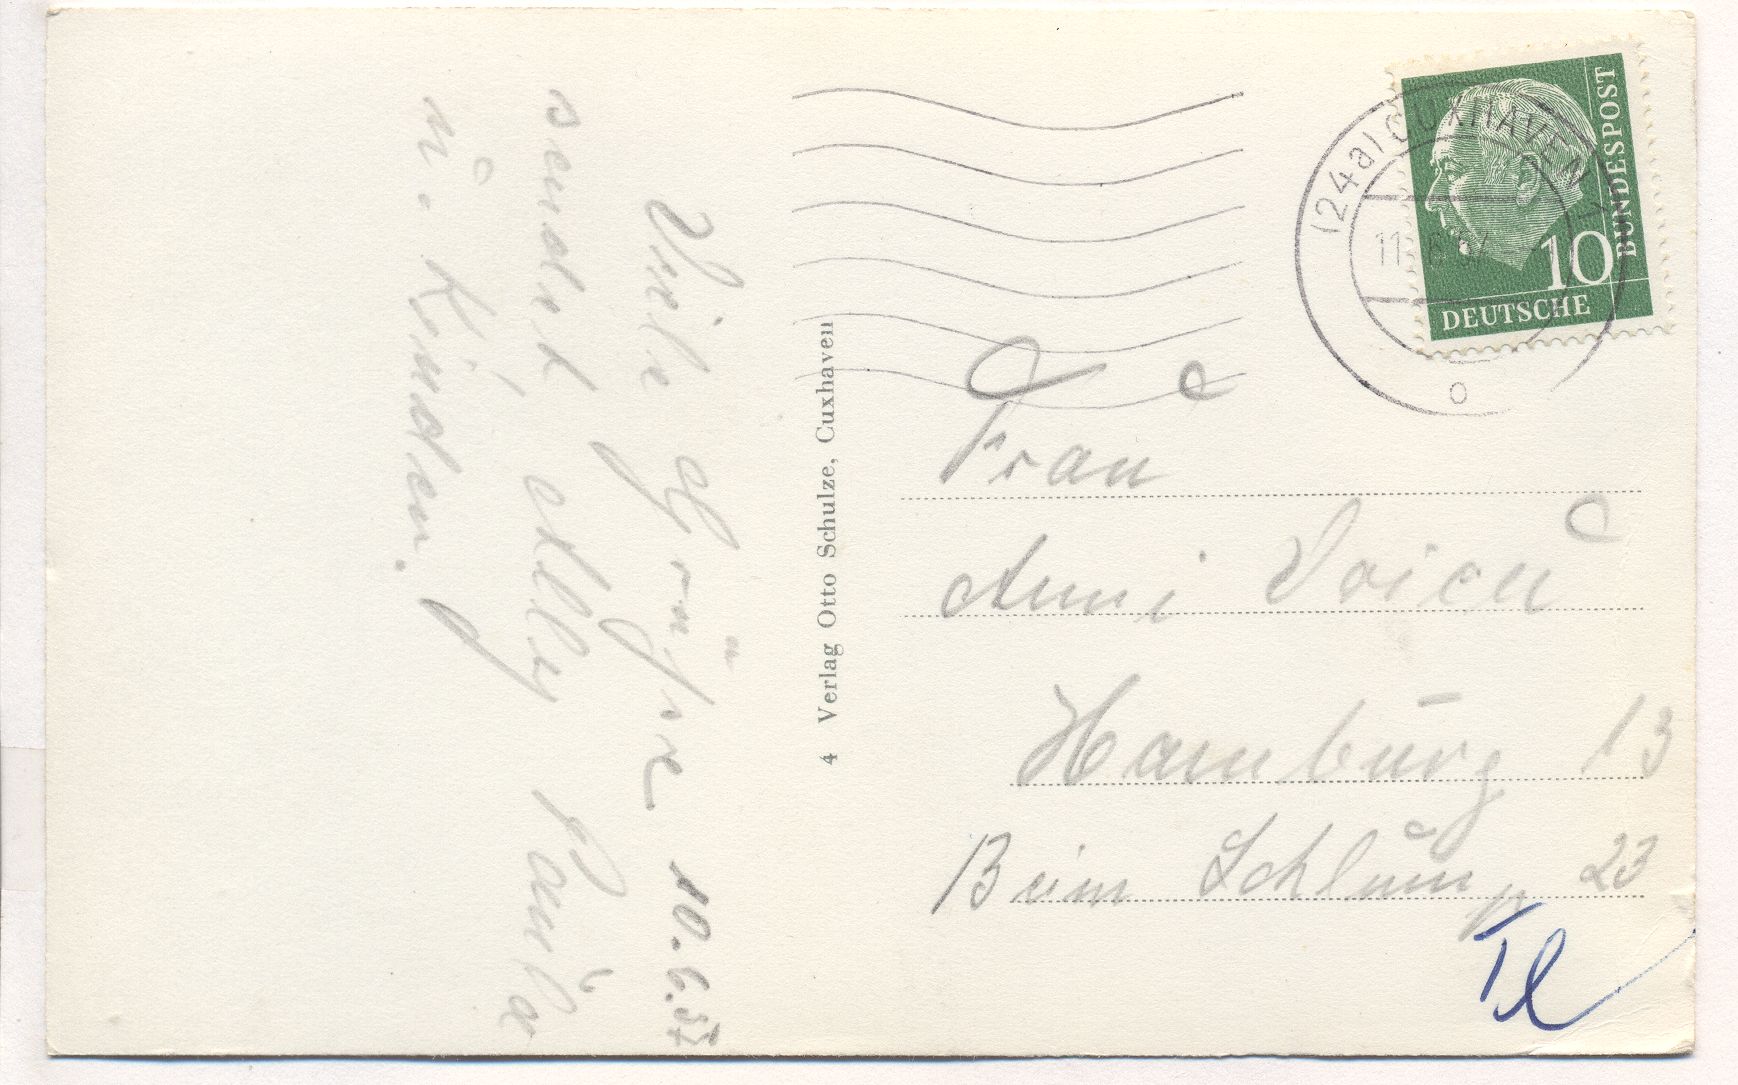 Viele Grüße 10.6.57
sendet Paula
u. Kinder.
4 Verlag Otto Schulze, Cuxhaven
(24a) CUXHAVEN 1
11.6.57
10
DEUTSCHE
BUNDESPOST
Frau
Anni
Hamburg 13
Beim Schlump 23